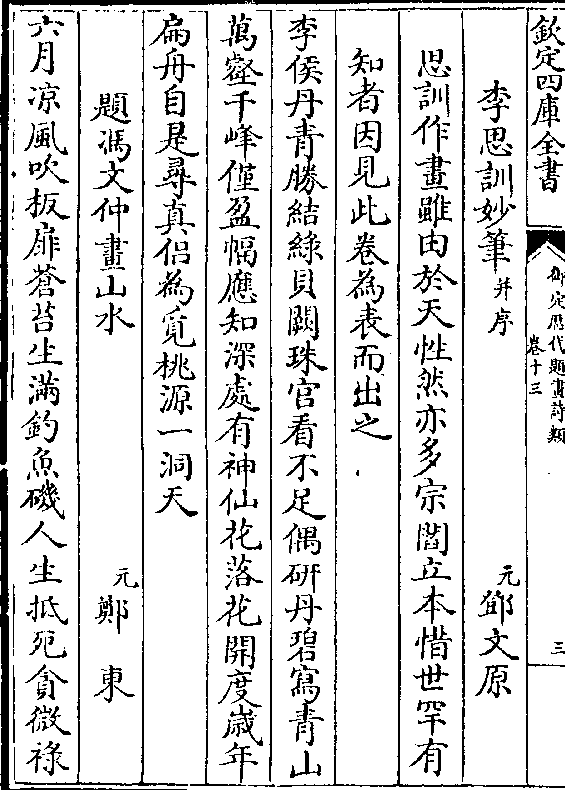 欽定四庫全書
御定歷代題畫詩類
卷十三
三
李思訓妙筆 并序
元 鄧文原
思訓作畫雖由於天性然亦多宗閻立本惜世罕有
知者因見此卷為表而出之
李侯丹青勝結綠貝闕珠宫看不足偶研丹碧寫青山
萬壑千峰僅盈幅應知深處有神仙花落花開度嵗年
扁舟自是尋真侣為覓桃源一洞天
題馮文仲畫山水
元 鄭東
六月凉風吹板扉蒼苔生滿釣魚磯人生抵死貪微禄